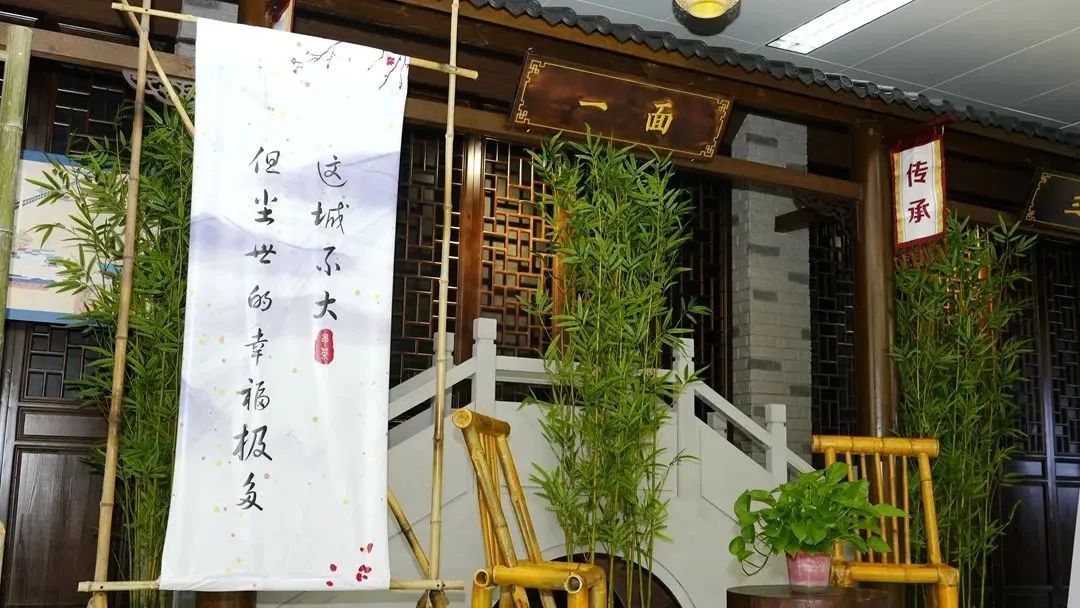 这城不大
但尘世的幸福极多
一面
传承
三